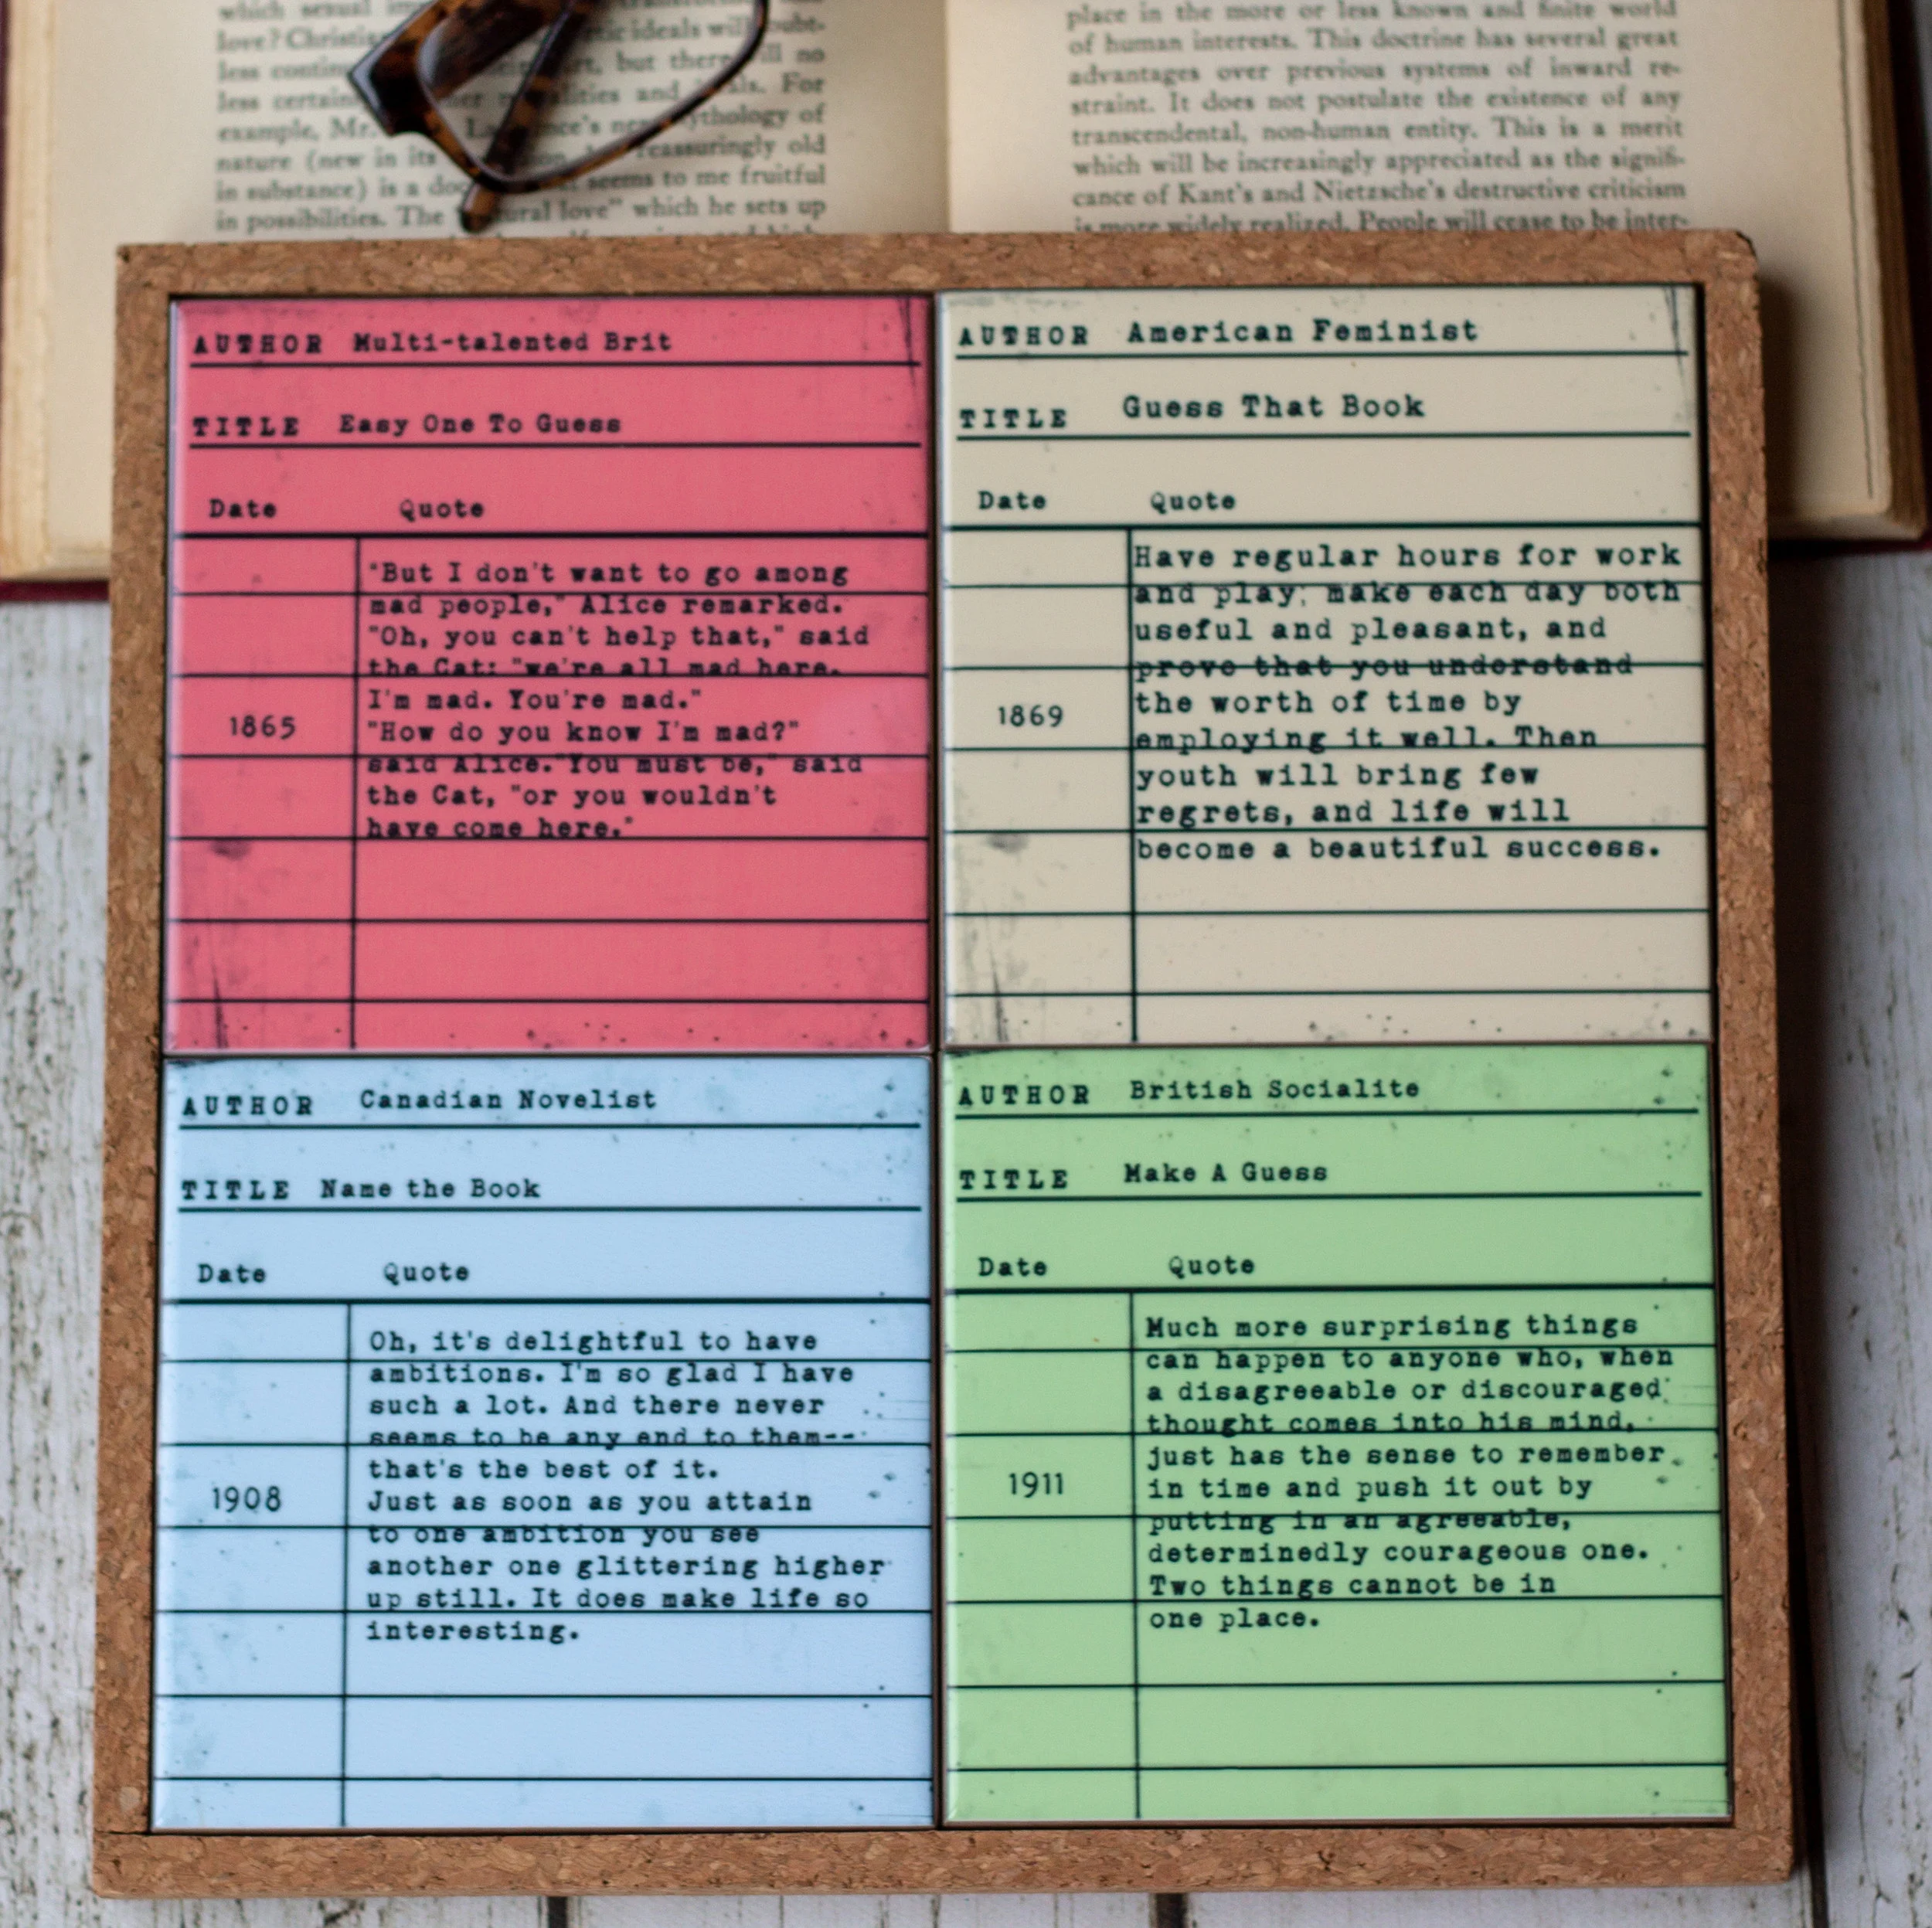 which sexual
love? Christia ideals will
less contin but there no
less certain and For
example, Mr. mythology of
nature (new in its reassuringly old
in substance) is a seems to me fruitful
in possibilities. The love" which he sets up
place in the more or less known and finite world
of human interests. This doctrine has several great
advantages over previous systems of inward re-
straint. It does not postulate the existence of any
transcendental, non-human entity. This is a merit
which will be increasingly appreciated as the signifi-
cance of Kant's and Nietzsche's destructive criticism
is more widely realized. People will cease to be inter-
AUTHOR Multi-talented Brit
TITLE Easy One To Guess
Date Quote
"But I don't want to go among
mad people," Alice remarked.
"Oh, you can't help that," said
the Cat: "we're all mad here.
I'm mad. You're mad."
1865
"How do you know I'm mad?"
said Alice."You must be," said
the Cat, "or you wouldn't
have come here."
AUTHOR American Feminist
TITLE Guess That Book
Date Quote
Have regular hours for work
and play; make each day both
useful and pleasant, and
prove that you understand
the worth of time by
1869
employing it well. Then
youth will bring few
regrets, and life will
become a beautiful success.
AUTHOR Canadian Novelist
TITLE Name the Book
Date Quote
Oh, it's delightful to have
ambitions. I'm so glad I have
such a lot. And there never
seems to be any end to them--
that's the best of it.
1908
Just as soon as you attain
to one ambition you see
another one glittering higher
up still. It does make life so
interesting.
AUTHOR British Socialite
TITLE Make A Guess
Date Quote
Much more surprising things
can happen to anyone who, when
a disagreeable or discouraged
thought comes into his mind,
just has the sense to remember
1911
in time and push it out by
putting in an agreeable,
determinedly courageous one.
Two things cannot be in
one place.